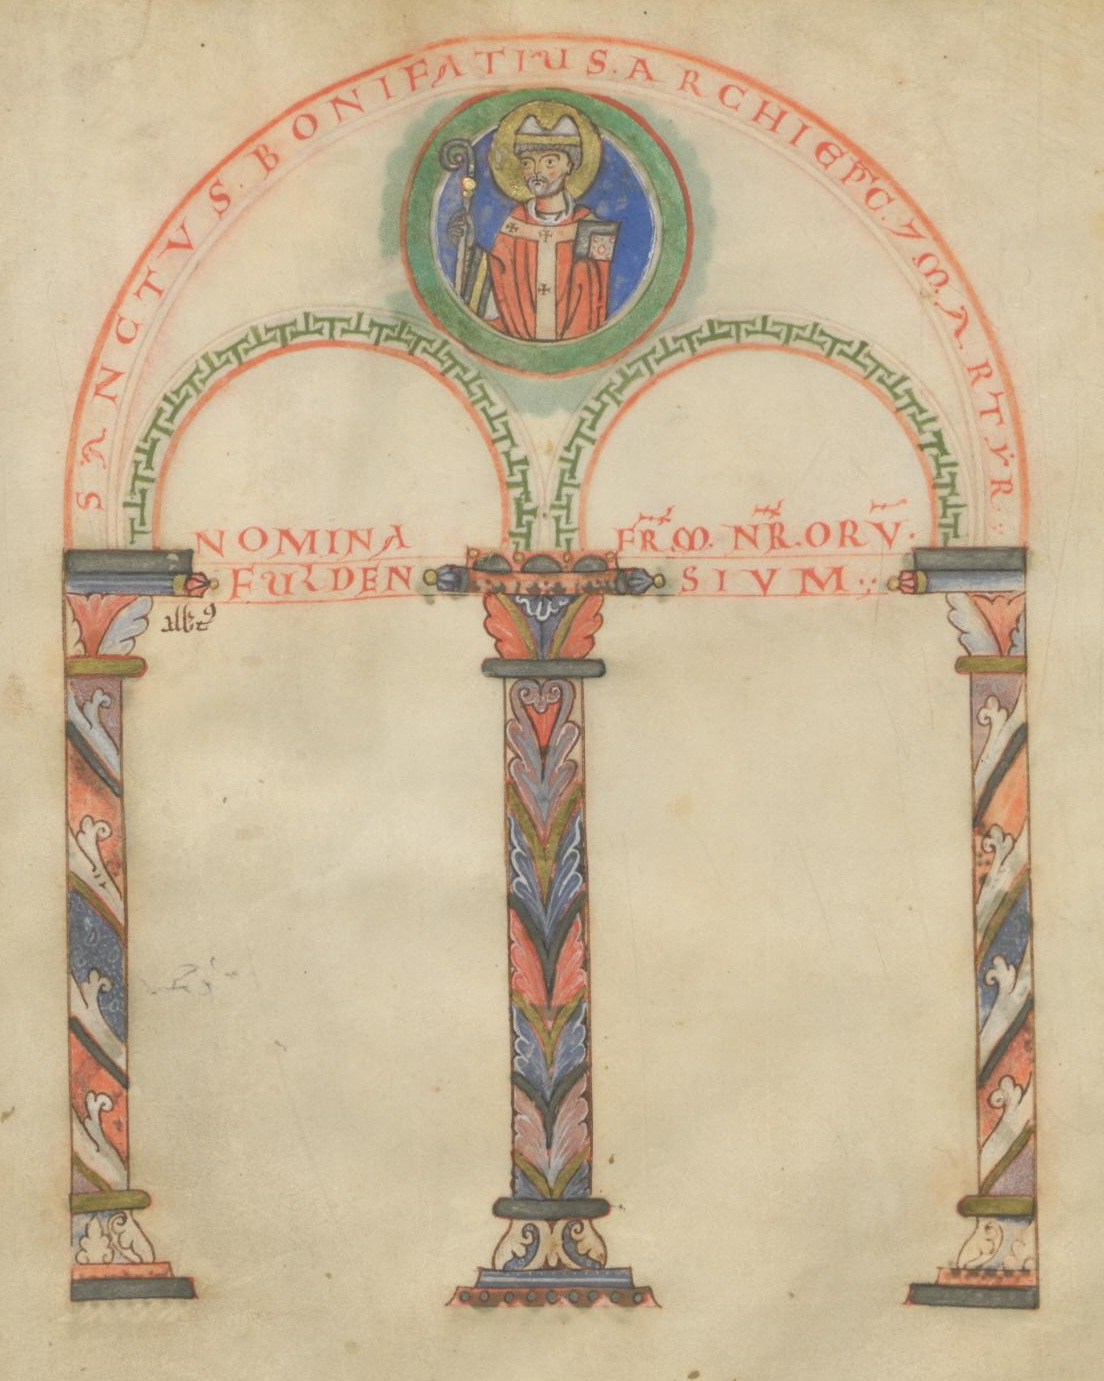 SANCTVS. BONIFATIUS. ARCHIEP̅C. ⁊ M.A.RTẎR.:
NOMINA FR̅M. NR̅.ORV̅.
FURDENSIVM:;
alb̅tꝰ